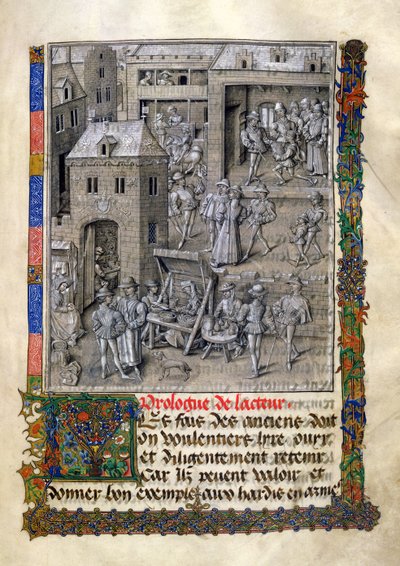 Prologue de lacteur.
LEs fais des anciens doit
on voulentiers lyre ouyr
et diligentement retenir
Car ilz peuent valoir et
donner bon exemple aux hardis en armes